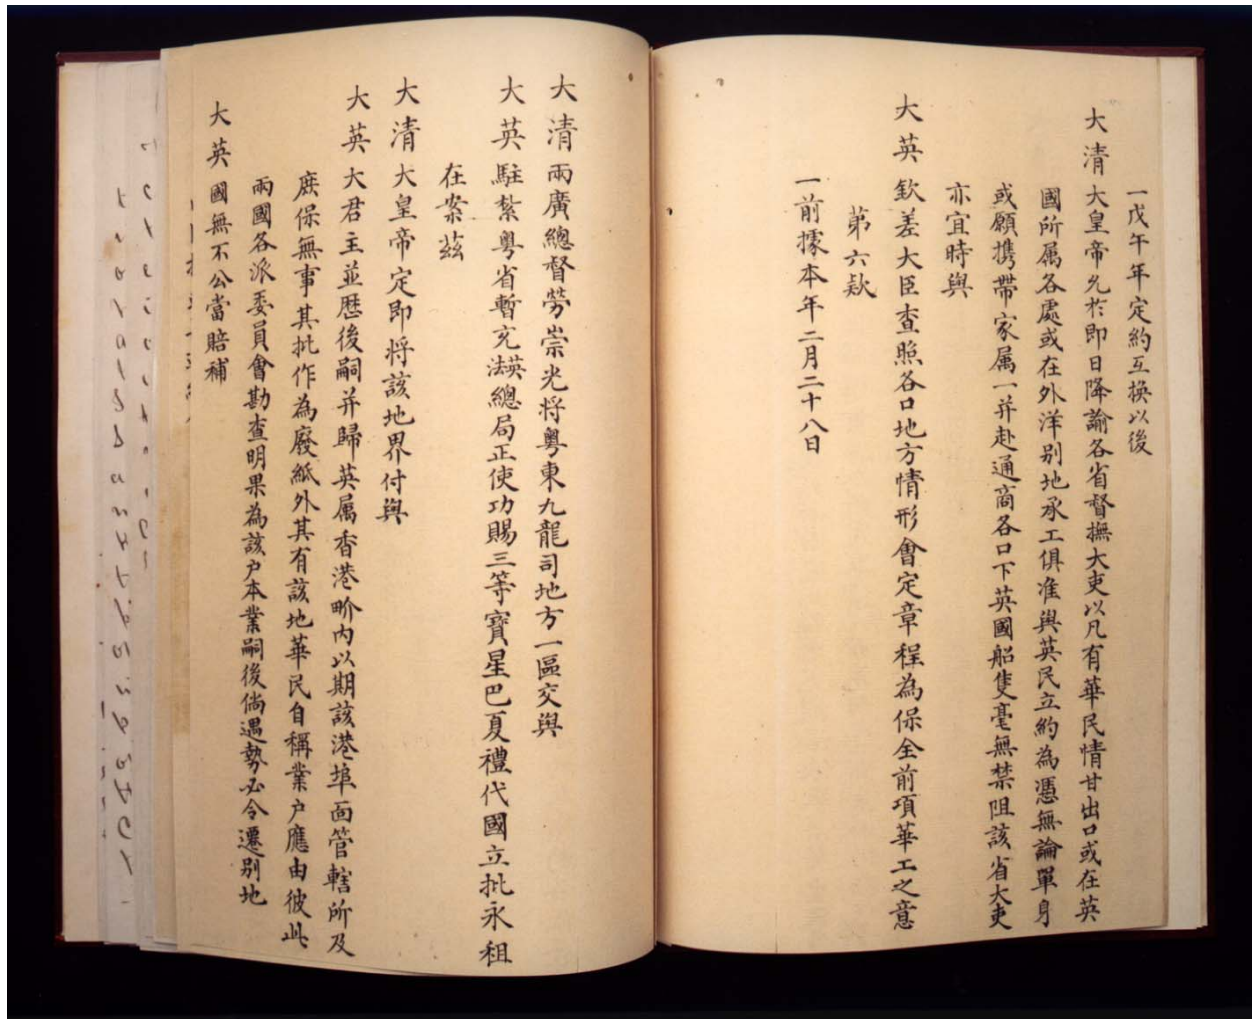 一戊午年定約互換以後
大清大皇帝允於即日降諭各省督撫大吏以凡有華民情甘出口或在英
國所屬各處或在外洋別地承工俱准與英民立約為憑無論單身
或願携帶家属一并赴通商各口下英國船隻毫無禁阻該省大吏
亦宜時與
大英欽差大臣查照各口地方情形會定章程為保全前項華工之意
第六款
一前據本年二月二十八日
大清兩廣總督勞崇光将粤東九龍司地方一區交與
大英駐紮粤省暫充英法總局正使功賜三等寶星巴夏禮代國立批永租
在案茲
大清大皇帝定即将該地界付與
大英大君主並歷後嗣并歸英属香港界内以期該港埠面管轄所及
庶保無事其批作為廢紙外其有該地華民自稱業户應由彼此
兩國各派委員會勘查明果為該户本業嗣後倘遇勢必令遷別地
大英國無不公當賠補